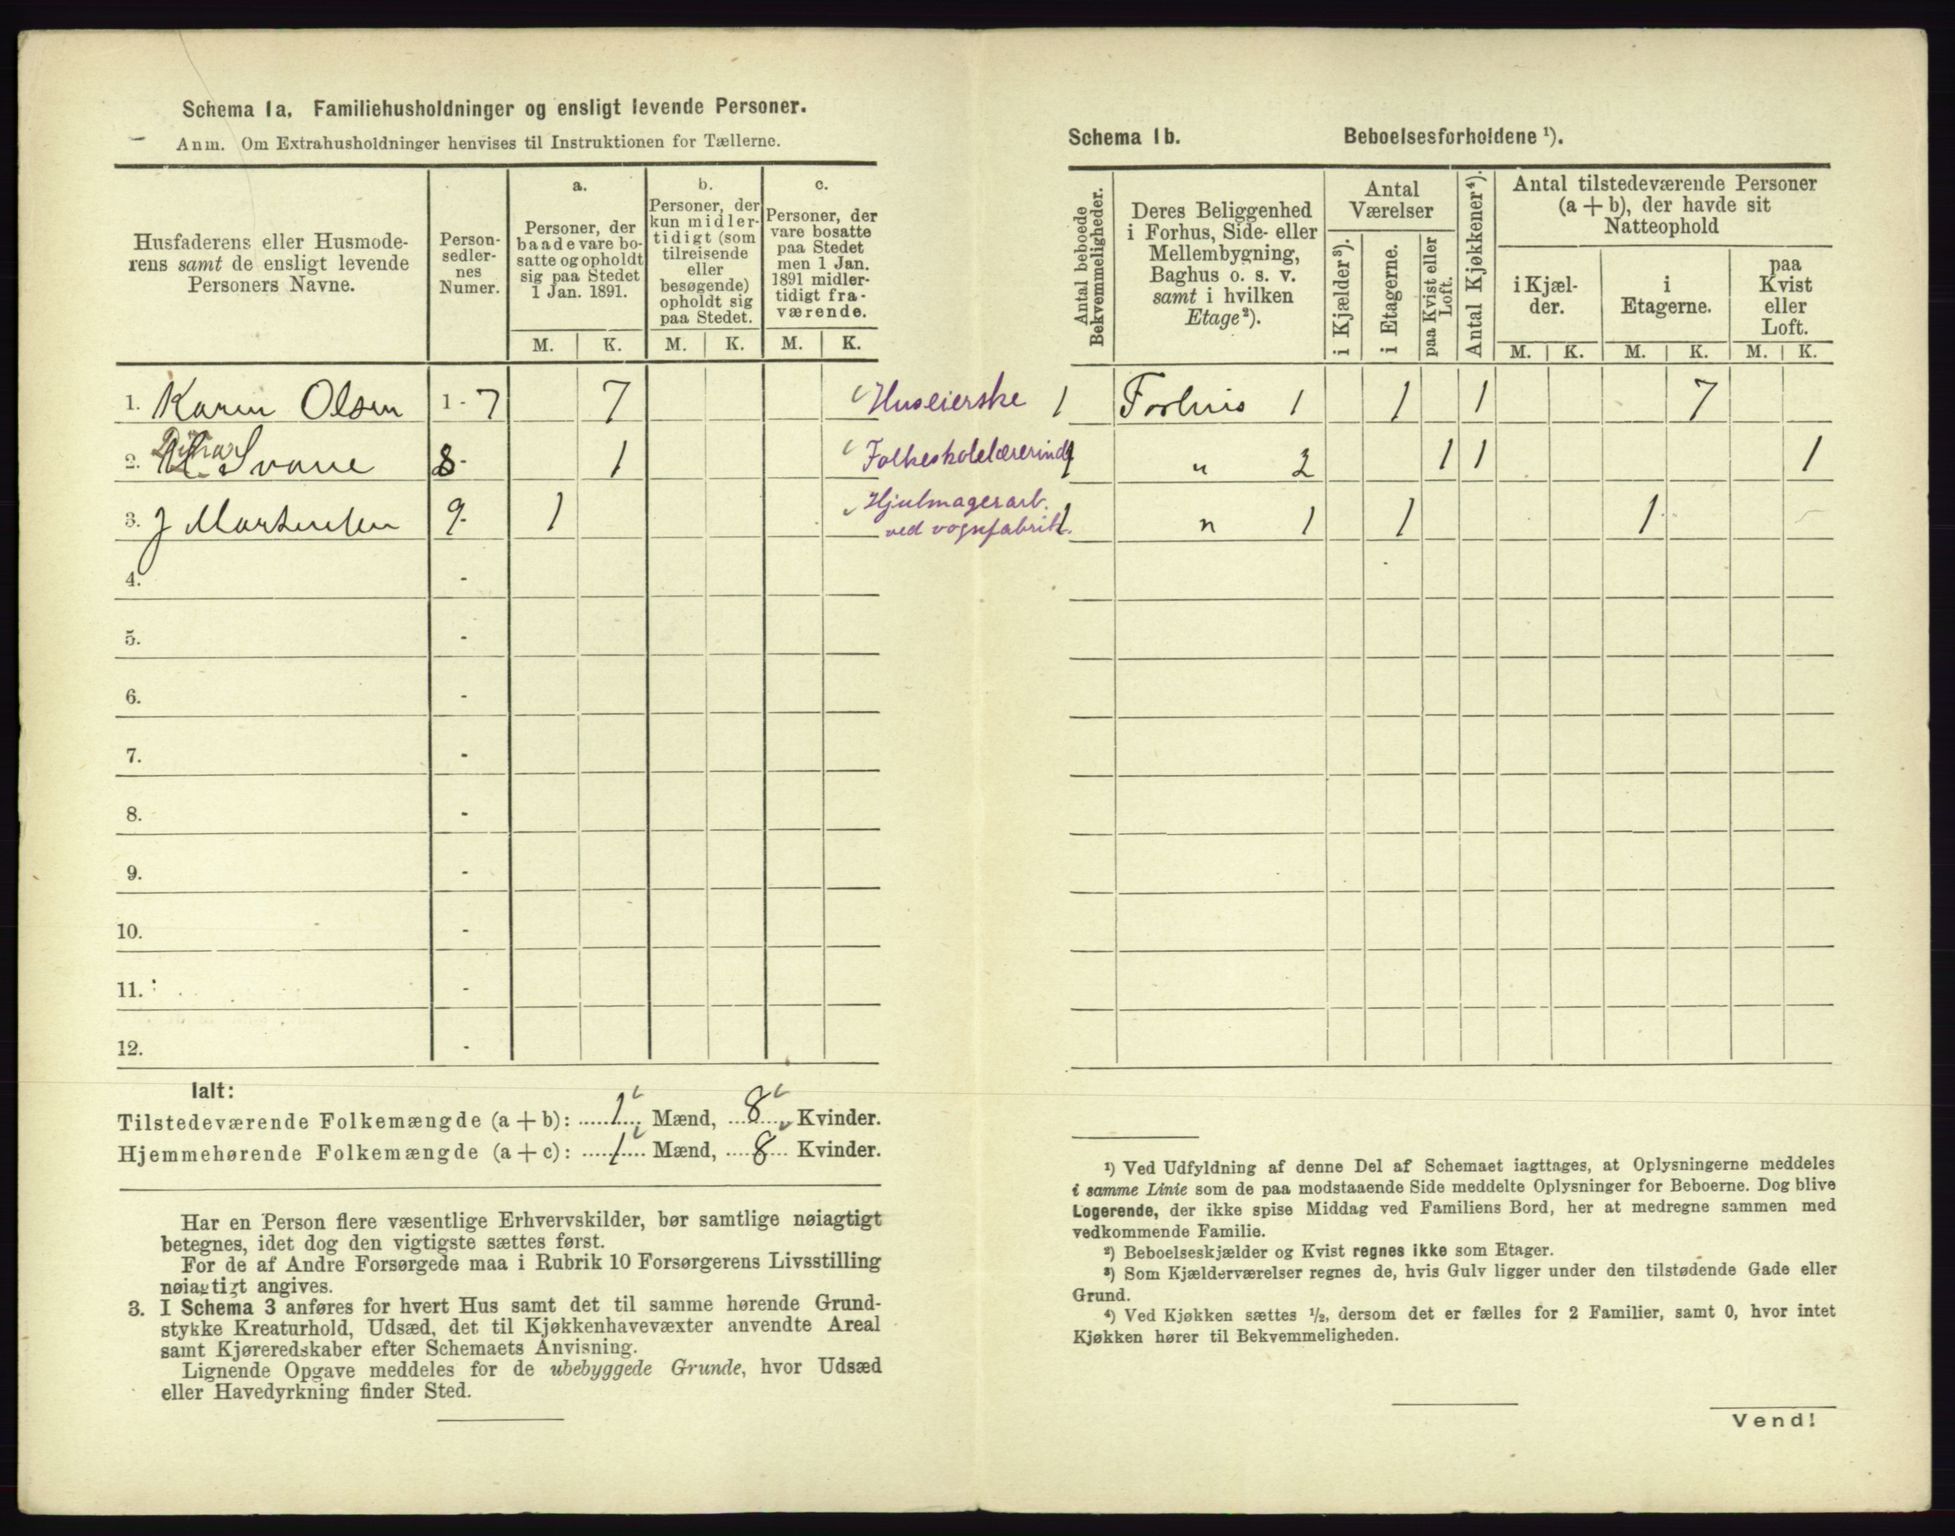 Schema 1a. Familiehusholdninger og ensligt levende Personer.
Anm. Om Extrahusholdninger henvises til Instruktionen for Tællerne.
Husfaderens eller Husmode-
rens samt de ensligt levende
Personers Navne.
Person-
sedler-
nes
Numer.
a.
Personer, der
baade vare bo-
satte og opholdt
sig paa Stedet
1 Jan. 1891.
b.
Personer, der
kun midler-
tidigt (som
tilreisende
eller
besøgende)
opholdt sig
paa Stedet.
c.
Personer, der
vare bosatte
paa Stedet
men 1 Jan.
1891 midler-
tidigt fra-
værende.
M. K. M. K. M. K.
1. Karen Olsen 1-7 7 Huseierske
2. Svane 8- 1 Folkeskolelærerinde
3. J Martensen 9- 1 Hjulmagerarb.
ved vognfabrik.
4. -
5. -
6. -
7. -
8. -
9. -
10. -
11. -
12. -
Ialt:
Tilstedeværende Folkemængde (a + b): 1 Mænd, 8 Kvinder.
Hjemmehørende Folkemængde (a + c): 1 Mænd, 8 Kvinder.
Har en Person flere væsentlige Erhvervskilder, bør samtlige nøiagtigt
betegnes, idet dog den vigtigste sættes først.
For de af Andre Forsørgede maa i Rubrik 10 Forsørgerens Livsstilling
nøiagtigt angives.
3. I Schema 3 anføres for hvert Hus samt det til samme hørende Grund-
stykke Kreaturhold, Udsæd, det til Kjøkkenhavevæxter anvendte Areal
samt Kjøreredskaber efter Schemaets Anvisning.
Lignende Opgave meddeles for de ubebyggede Grunde, hvor Udsæd
eller Havedyrkning finder Sted.
Schema 1b. Beboelsesforholdene ¹).
Antal beboede
Bekvemmeligheder.
Deres Beliggenhed
i Forhus, Side- eller
Mellembygning,
Baghus o. s. v.
samt i hvilken
Etage²).
Antal
Værelser
i Kjælder³).
i Etagerne.
paa Kvist eller
Loft.
Antal Kjøkkener⁴).
Antal tilstedeværende Personer
(a + b), der havde sit
Natteophold
i Kjæl-
der.
i
Etagerne.
paa
Kvist
eller
Loft.
M. K. M. K. M. K.
1 Forhus 1 1 1 7
1 " 2 1 1 1
1 " 1 1 1
¹) Ved Udfyldning af denne Del af Schemaet iagttages, at Oplysningerne meddeles
i samme Linie som de paa modstaaende Side meddelte Oplysninger for Beboerne. Dog blive
Logerende, der ikke spise Middag ved Familiens Bord, her at medregne sammen med
vedkommende Familie.
²) Beboelseskjælder og Kvist regnes ikke som Etager.
³) Som Kjælderværelser regnes de, hvis Gulv ligger under den tilstødende Gade eller
Grund.
⁴) Ved Kjøkken sættes ½, dersom det er fælles for 2 Familier, samt 0, hvor intet
Kjøkken hører til Bekvemmeligheden.
Vend!